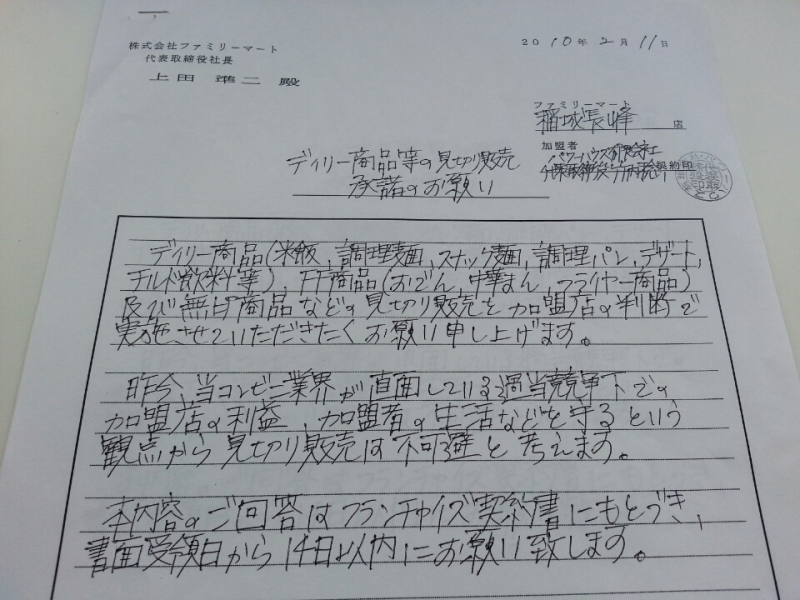 株式会社ファミリーマート
代表取締役社長
上田 準二 殿
2010年2月11日
ファミリーマート
稲城長峰 店
加盟者
パワーハウス有限会社
契約印
デイリー商品等の見切り販売
承諾のお願い
デイリー商品(米飯、調理麺、スナック麺、調理パン、デザート、
チルド飲料等)、FF商品(おでん、中華まん、フライヤー商品)
及び無印商品などの見切り販売を加盟店の判断で
実施させていただきたくお願い申し上げます。
昨今、当コンビニ業界が直面している過当競争下での
加盟店の利益、加盟者の生活などを守るという
観点から見切り販売は不可避と考えます。
本内容のご回答はフランチャイズ契約書にもとづき、
書面受領日から14日以内にお願い致します。